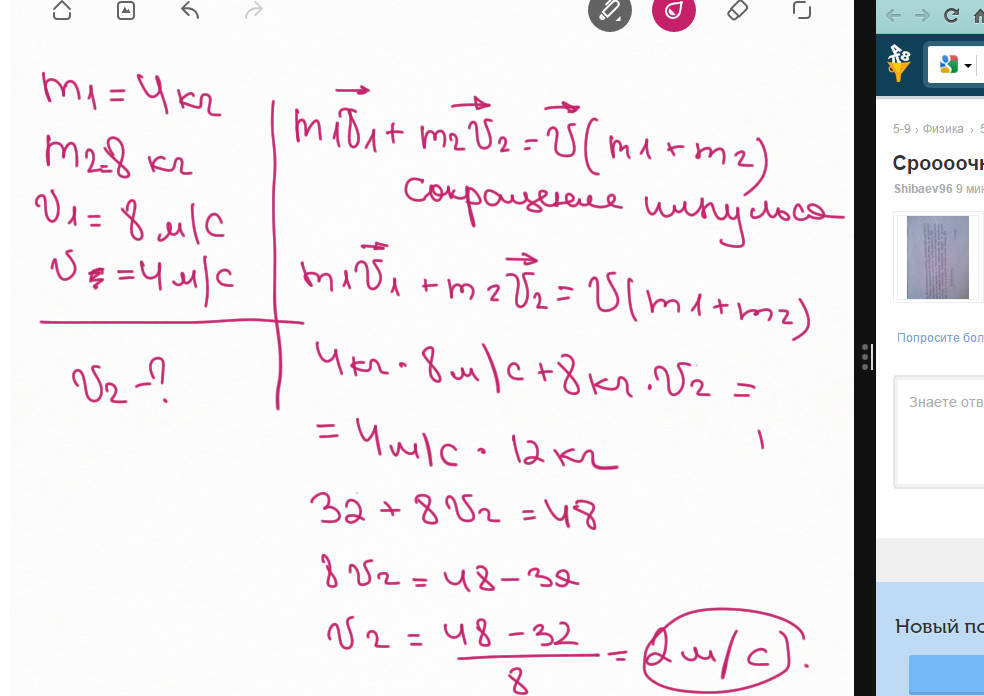 m1 = 4 кг
m2 = 8 кг
v1 = 8 м/с
v = 4 м/с
v2 - ?
m1v1 + m2v2 = v(m1 + m2)
m1v1 + m2v2 = v(m1 + m2)
4 кг · 8 м/с + 8 кг · v2 =
= 4 м/с · 12 кг
32 + 8v2 = 48
8v2 = 48 - 32
v2 = 48 - 32 / 8 = 2 м/с.
5-9 › Физика › 5
Сроооочн
Shibaev96 9 мин
Попросите бол
Знаете отв
Новый по